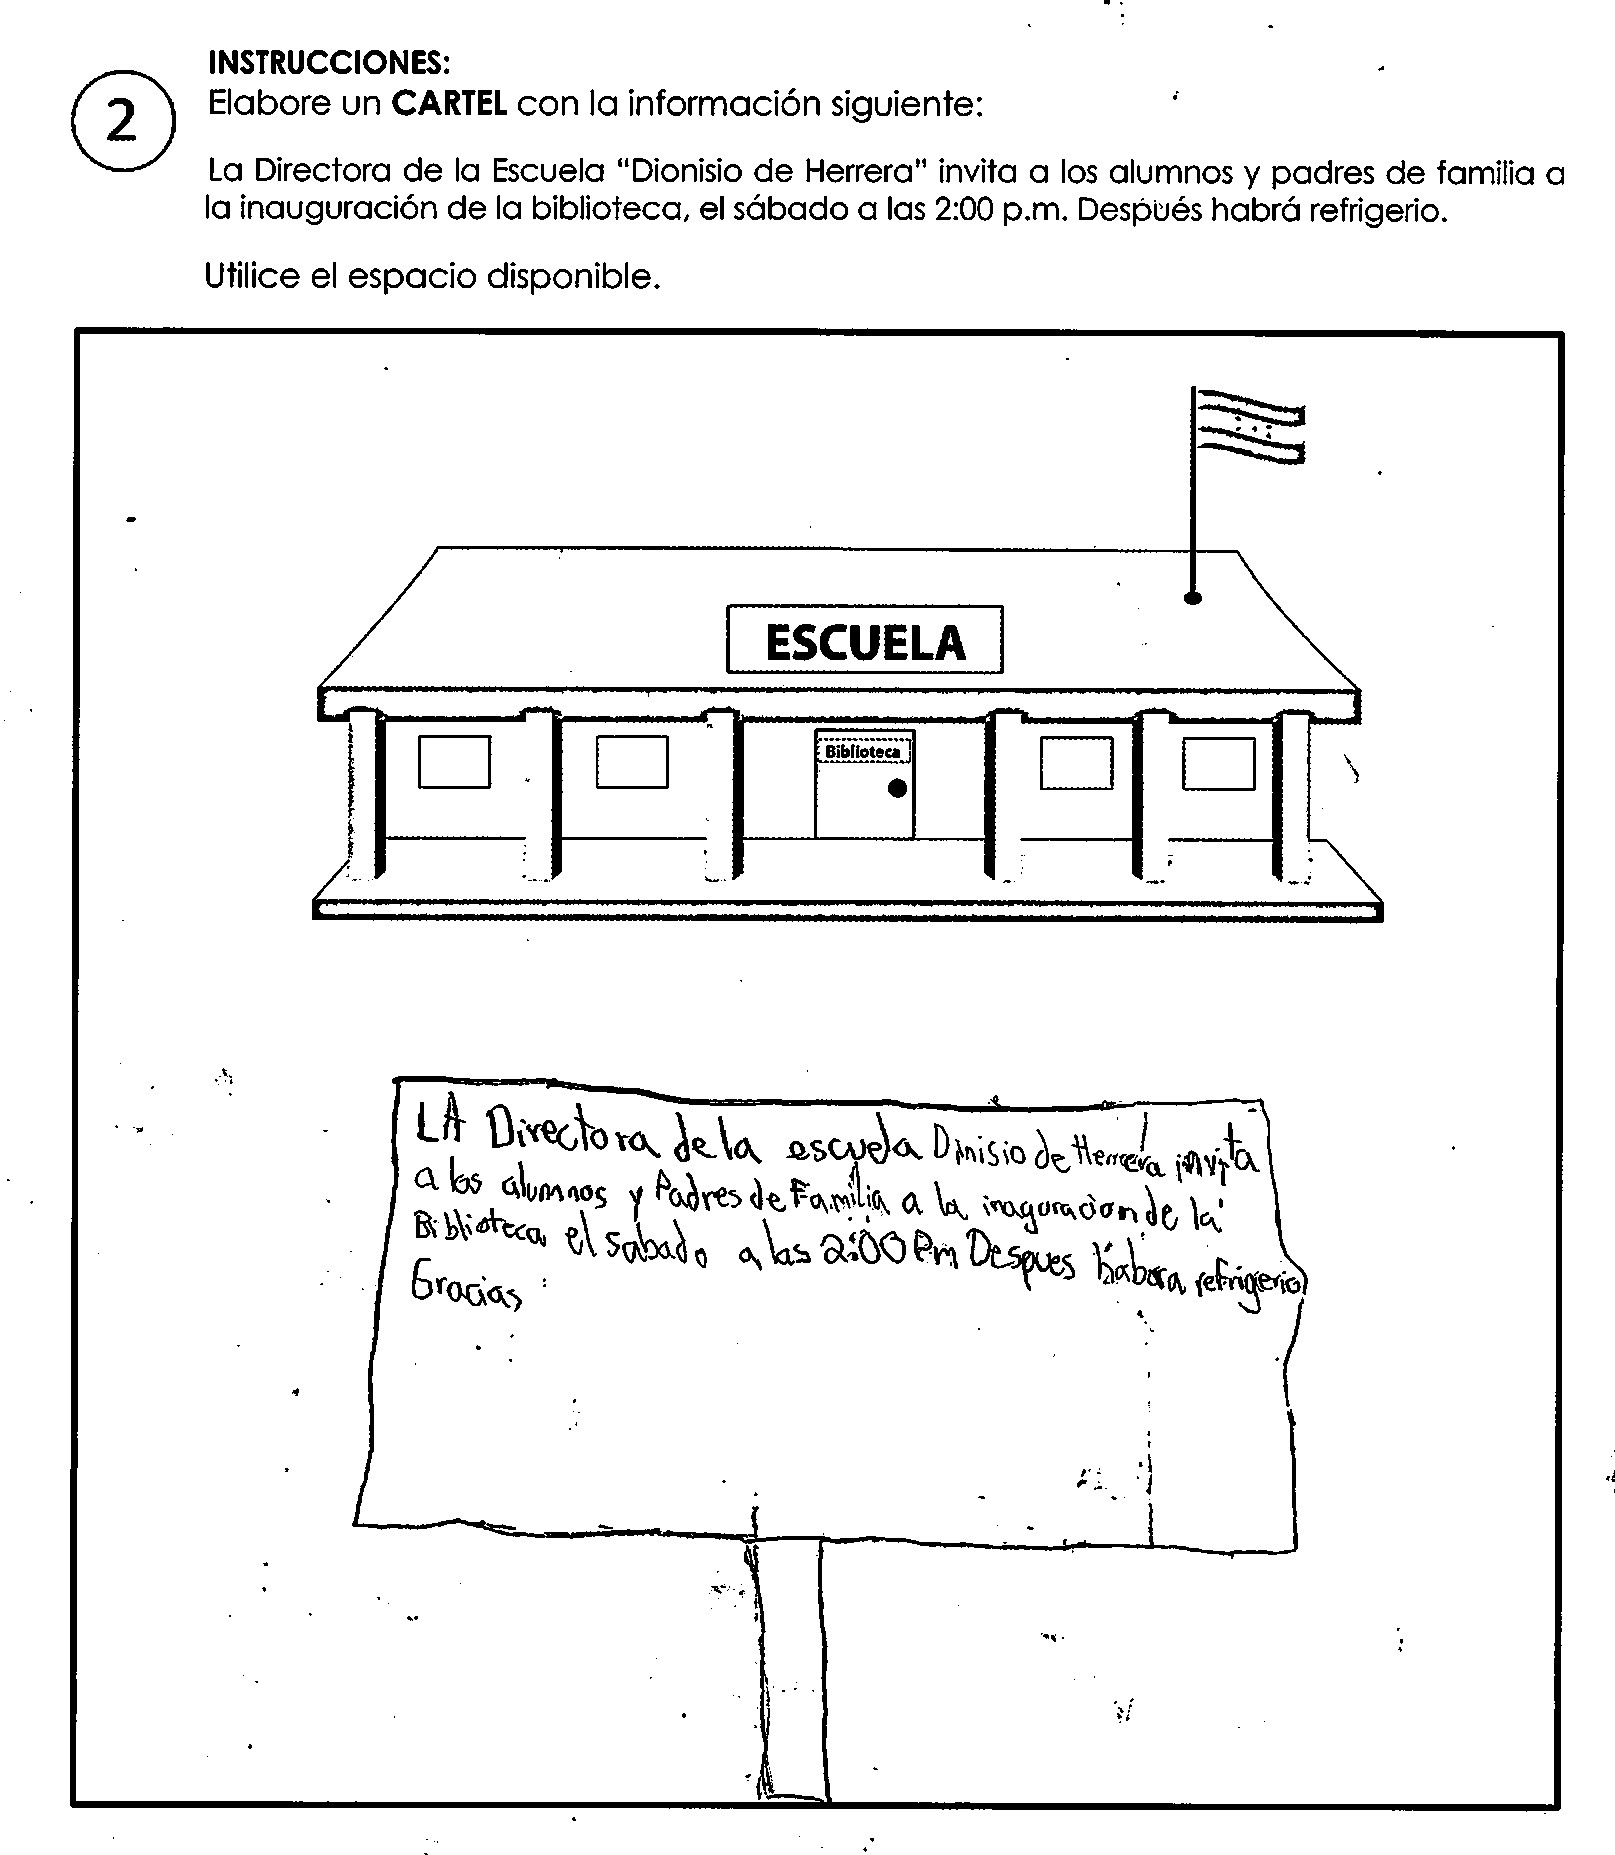 2
INSTRUCCIONES:
Elabore un CARTEL con la información siguiente:
La Directora de la Escuela "Dionisio de Herrera" invita a los alumnos y padres de familia a
la inauguración de la biblioteca, el sábado a las 2:00 p.m. Después habrá refrigerio.
Utilice el espacio disponible.
ESCUELA
Biblioteca
LA Directora de la escuela Dinisio de Herrera invita
a los alumnos y Padres de Familia a la inaguracion de la
Biblioteca el sabado a las 2:00 Pm Despues habara refrigerio
Gracias